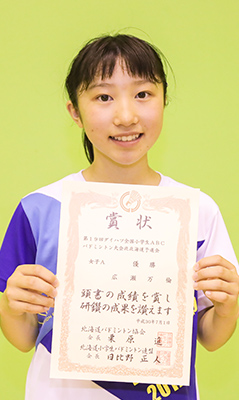 賞状
第19回ダイハツ全国小学生ABC
バドミントン大会北海道予選会
女子A 優勝
広瀬万倫
頭書の成績を賞し
研鑽の成果を讃えます
北海道バドミントン協会
会長 栗原 進
北海道小学生バドミントン連盟
会長 日比野正人